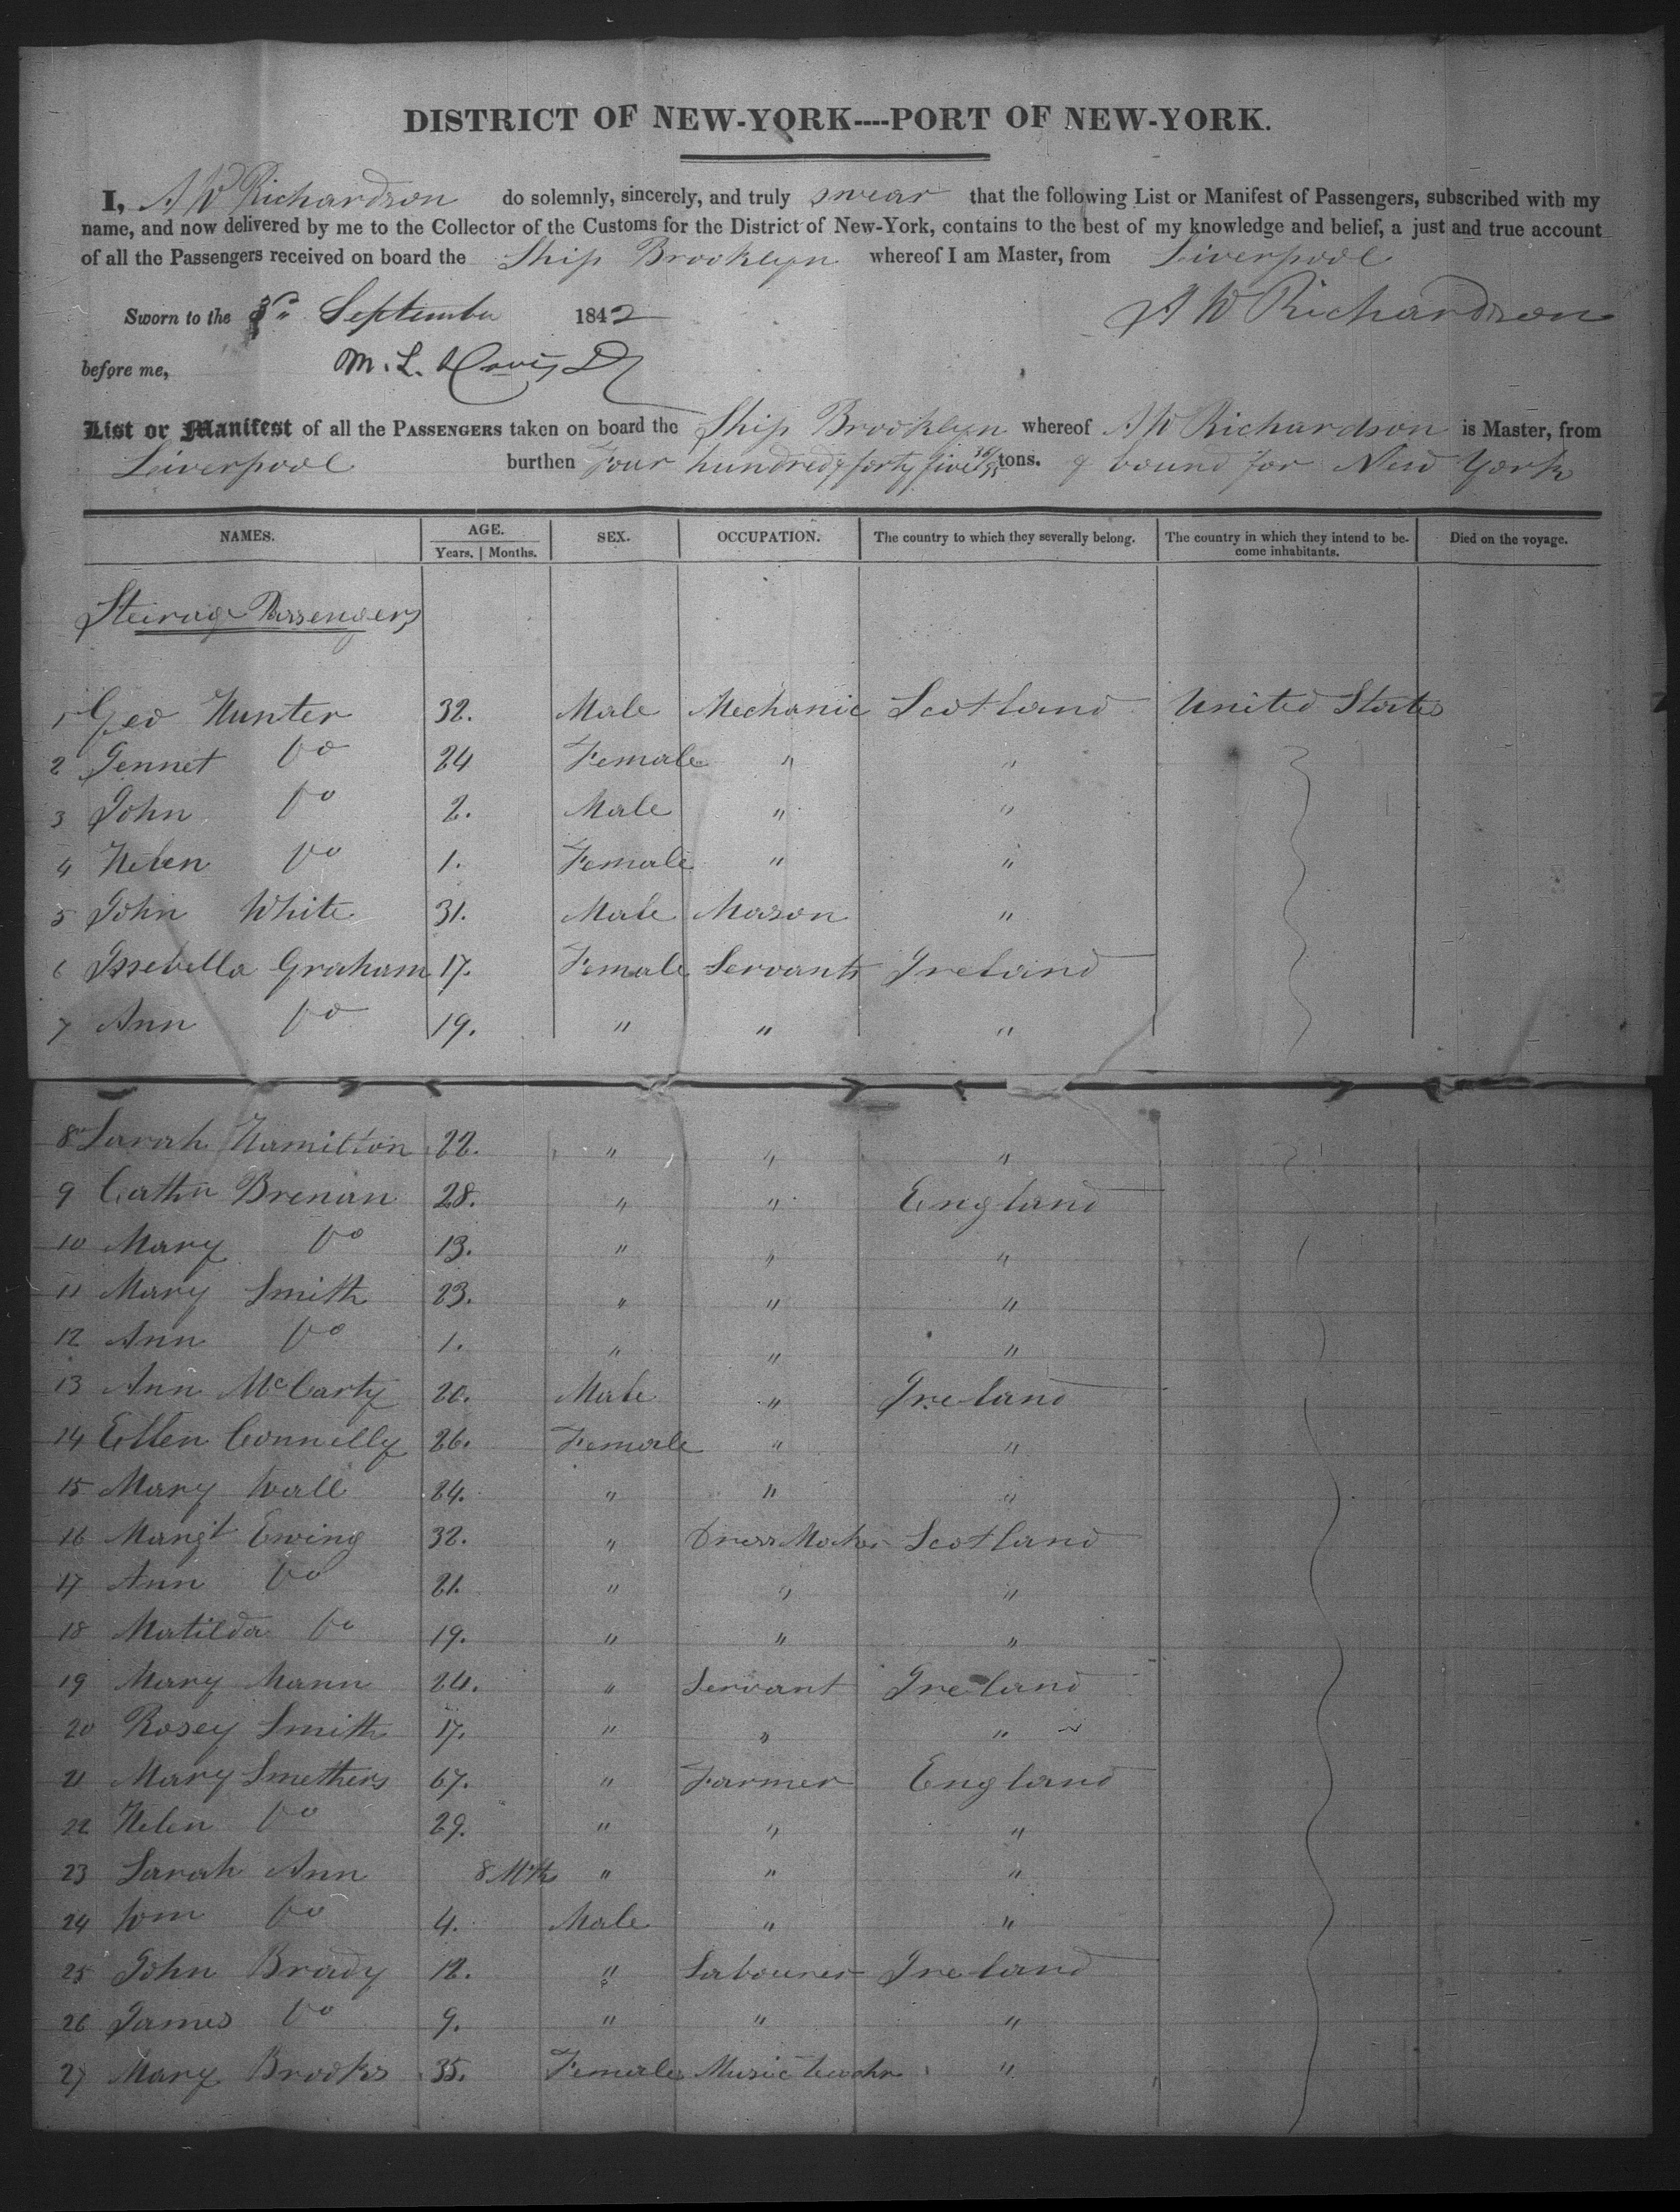 DISTRICT OF NEW-YORK----PORT OF NEW-YORK.
I, A W Richardson do solemnly, sincerely, and truly swear that the following List or Manifest of Passengers, subscribed with my
name, and now delivered by me to the Collector of the Customs for the District of New-York, contains to the best of my knowledge and belief, a just and true account
of all the Passengers received on board the Ship Brooklyn whereof I am Master, from Liverpool
Sworn to the September 1842 A W Richardson
before me, M. L. Davis
List or Manifest of all the PASSENGERS taken on board the Ship Brooklyn whereof A W Richardson is Master, from
Liverpool burthen Four hundred & forty five tons. & bound for New York
NAMES. AGE. SEX. OCCUPATION. The country to which they severally belong. The country in which they intend to be- Died on the voyage.
Years. Months. come inhabitants.
Steirage Passengers
1 Geo Hunter 32. Male Mechanic Scotland United States
2 Jennet Do 24 Female " "
3 John Do 2. Male " "
4 Helen Do 1. Female " "
5 John White 31. Male Mason "
6 Issebella Graham 17. Female Servants Ireland
7 Ann Do 19. " " "
8 Sarah Hamilton 22. " " "
9 Cathn Brenan 28. " " England
10 Mary Do 13. " " "
11 Mary Smith 23. " " "
12 Ann Do 1. " " "
13 Ann McCarty 20. Male " Ireland
14 Ellen Connelly 26. Female " "
15 Mary Wall 24. " " "
16 Margt Ewing 32. " Dress Maker Scotland
17 Ann Do 21. " " "
18 Matilda Do 19. " " "
19 Mary Mann 24. " Servant Ireland
20 Rosey Smith 17. " " "
21 Mary Smethers 67. " Farmer England
22 Helen Do 29. " " "
23 Sarah Ann 8 Mths " " "
24 Wm Do 4. Male " "
25 John Brady 12. " Labourer Ireland
26 James Do 9. " " "
27 Mary Brooks 35. Female Music teacher "